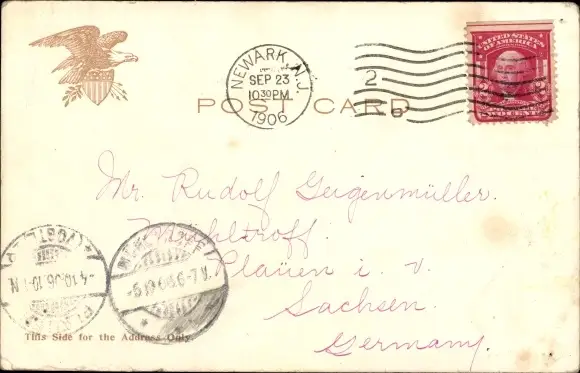 NEWARK, N.J.
SEP 23
10 30 PM
1906
2
UNITED STATES OF AMERICA
2 2
TWO CENTS
POST CARD
Mr. Rudolf Geigenmüller.
Mühltroff.
Plauen i. v.
Sachsen.
Germany.
(VOGTL.)
-4.10.06.10-11 N.
MÜHLTROFF
-5.10.06.6-7.V.
This Side for the Address Only.